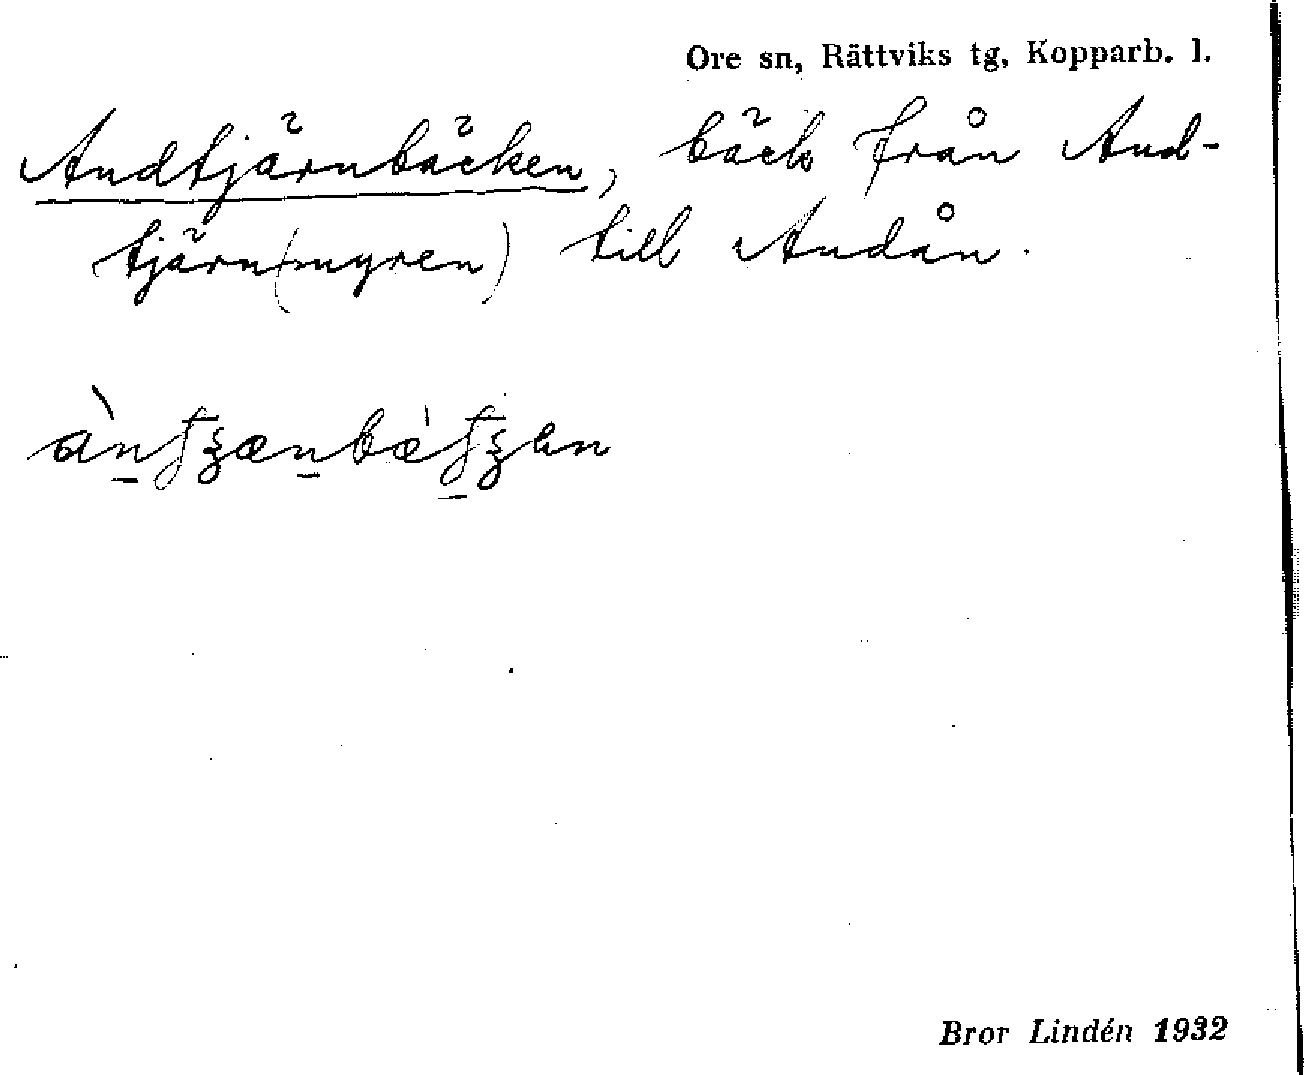 Ore sn, Rättviks tg, Kopparb. l.
Andtjärnbäcken, bäck från And-
tjärn(myren) till Andån.
Bror Lindén 1932